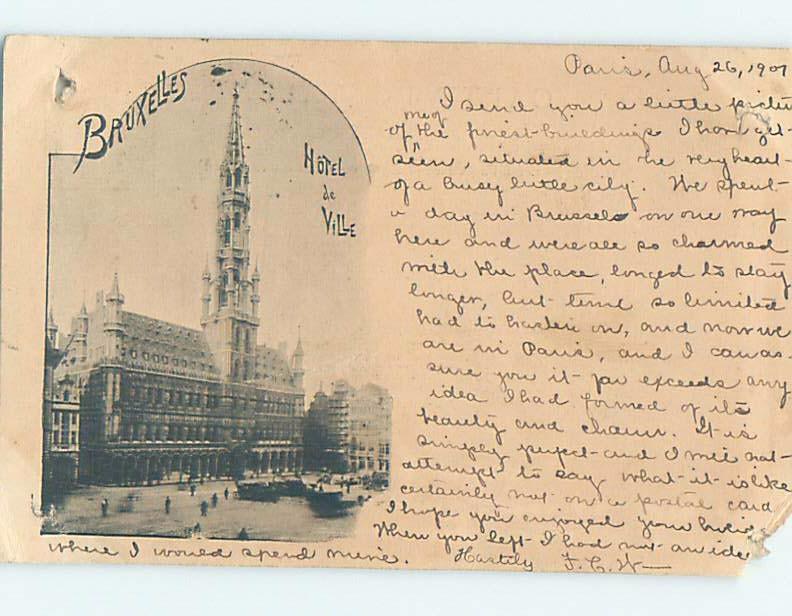 BRUXELLES
HÔTEL
de
VILLE
Paris, Aug 26, 1901
I send you a little pictu
one of
of the finest buildings I have yet
seen, situated in the very heart
of a busy little city. We spent
a day in Brussels on our way
here and were all so charmed
with the place, longed to stay
longer, but time so limited
had to hasten on, and now we
are in Paris, and I can as-
sure you it far exceeds any
idea I had formed of its
beauty and charm. It is
simply perfect and I will not
attempt to say what it is like
certainly not on a postal card
I hope you enjoyed your
When you left I had not an idea
where I would spend mine.
Hastily F.C.W